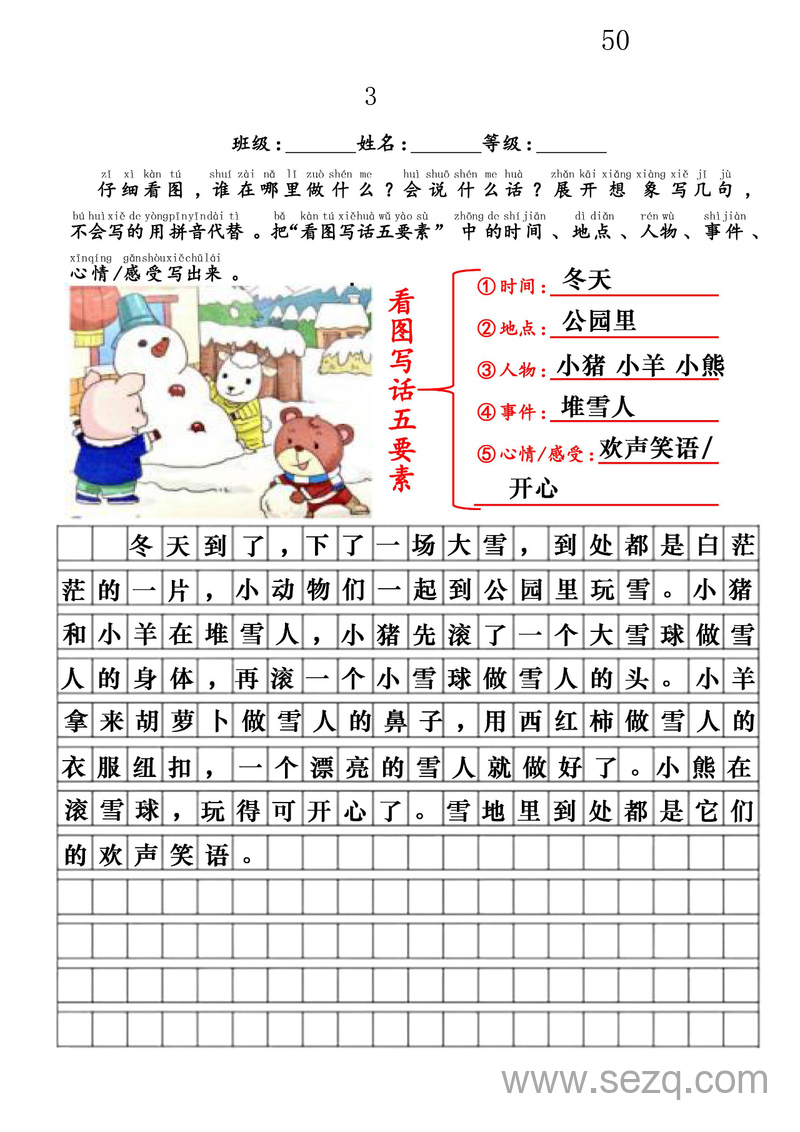 50
3
班级:______姓名:______等级:______
zǐ xì kàn tú shuí zài nǎ lǐ zuò shén me huì shuō shén me huà zhǎn kāi xiǎng xiàng xiě jǐ jù
仔细看图，谁在哪里做什么？会说什么话？展开想象写几句，
bú huì xiě de yòng pīn yīn dài tì bǎ kàn tú xiě huà wǔ yào sù zhōng de shí jiān dì diǎn rén wù shì jiàn
不会写的用拼音代替。把“看图写话五要素”中的时间、地点、人物、事件、
xīn qíng gǎn shòu xiě chū lái
心情/感受写出来。
看图写话五要素
①时间:冬天
②地点:公园里
③人物:小猪 小羊 小熊
④事件:堆雪人
⑤心情/感受:欢声笑语/
开心
冬天到了，下了一场大雪，到处都是白茫
茫的一片，小动物们一起到公园里玩雪。小猪
和小羊在堆雪人，小猪先滚了一个大雪球做雪
人的身体，再滚一个小雪球做雪人的头。小羊
拿来胡萝卜做雪人的鼻子，用西红柿做雪人的
衣服纽扣，一个漂亮的雪人就做好了。小熊在
滚雪球，玩得可开心了。雪地里到处都是它们
的欢声笑语。
www.sezq.com